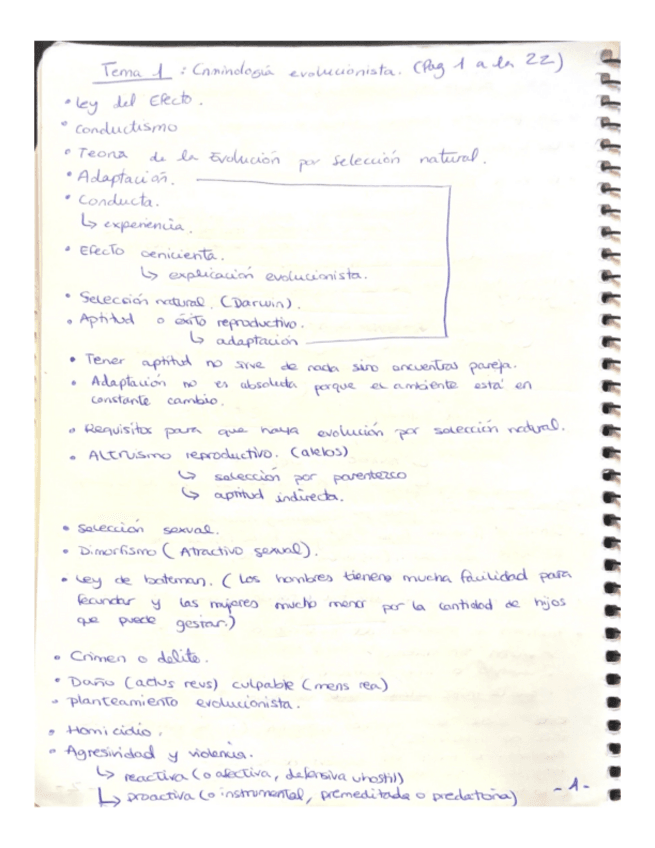 Tema 1 : Criminología evolucionista. (Pag 1 a la 22)
• Ley del Efecto.
• Conductismo
• Teoría de la Evolución por selección natural.
• Adaptación.
• Conducta.
↳ experiencia.
• Efecto cenicienta.
↳ explicación evolucionista.
• Selección natural. (Darwin).
• Aptitud o éxito reproductivo.
↳ adaptación
• Tener aptitud no sirve de nada sino encuentras pareja.
• Adaptación no es absoluta porque el ambiente está en
constante cambio.
• Requisitos para que haya evolución por selección natural.
• Altruismo reproductivo. (alelos)
↳ selección por parentezco
↳ aptitud indirecta.
• Selección sexual.
• Dimorfismo (Atractivo sexual).
• Ley de bateman. (Los hombres tienen mucha facilidad para
fecundar y las mujeres mucho menor por la cantidad de hijos
que puede gestar.)
• Crimen o delito.
• Daño (actus reus) culpable (mens rea)
• planteamiento evolucionista.
• Homicidio.
• Agresividad y violencia.
↳ reactiva (o afectiva, defensiva u hostil)
↳ proactiva (o instrumental, premeditada o predatoria)
- 1 -